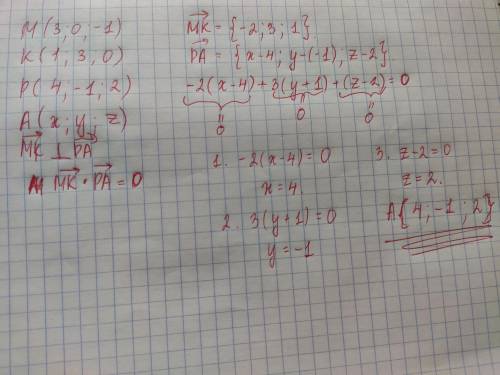 M(3; 0; -1)
K(1; 3; 0)
P(4; -1; 2)
A(x; y; z)
MK ⊥ PA
MK · PA = 0
MK = {-2; 3; 1}
PA = {x-4; y-(-1); z-2}
-2(x-4)+3(y+1)+(z-2)=0
0 0 0
1. -2(x-4)=0
x=4.
2. 3(y+1)=0
y=-1
3. z-2=0
z=2.
A{4; -1; 2}